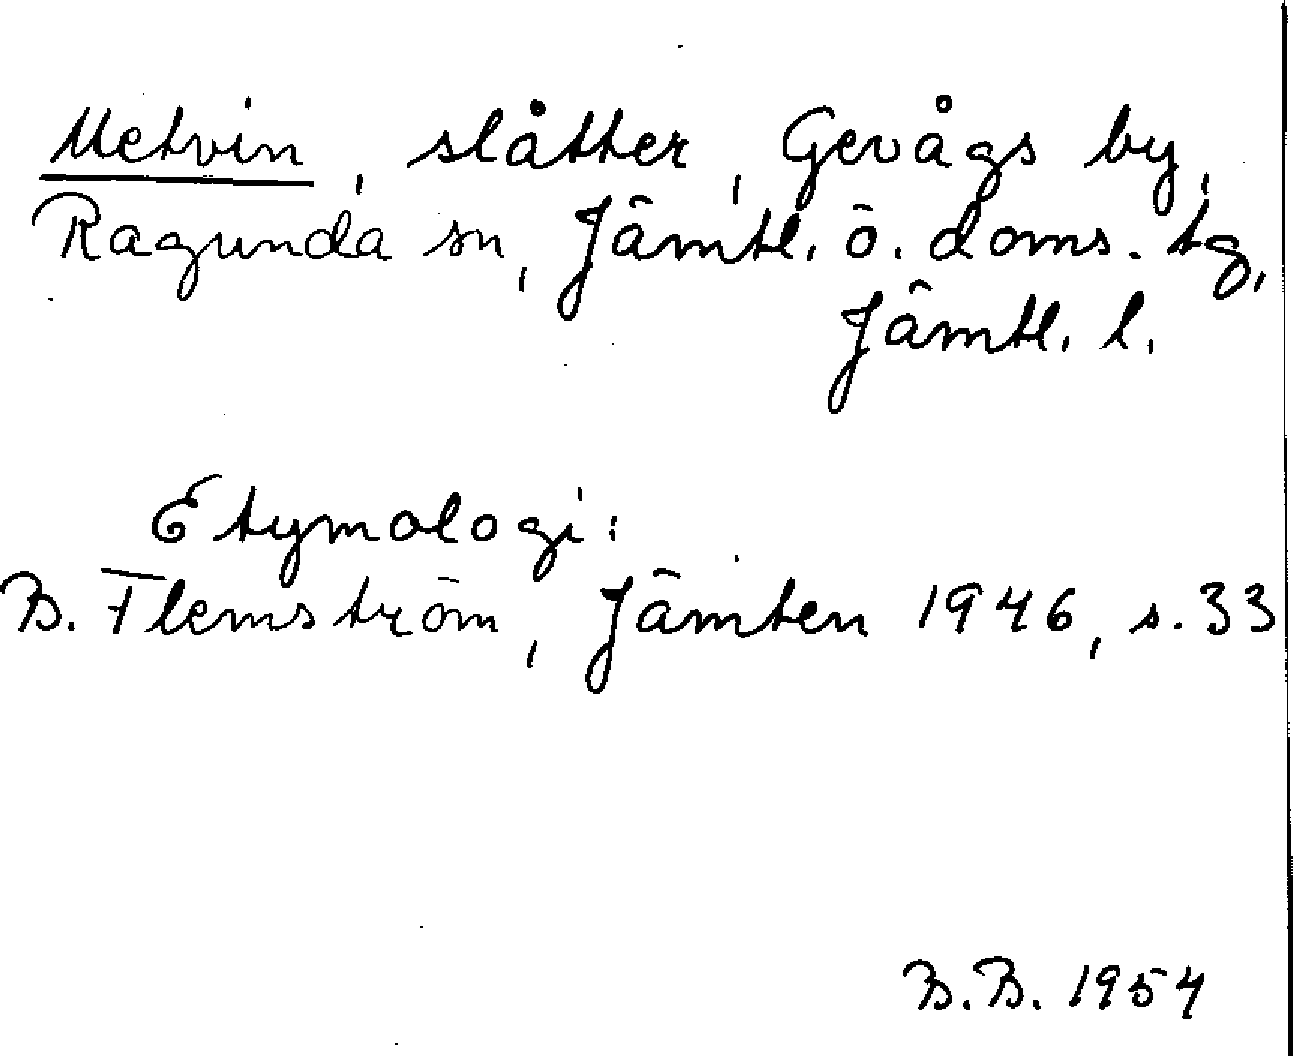 Metvin, slåtter, Gevågs by,
Ragunda sn, Jämtl. ö. doms. tg,
Jämtl. l.
Etymologi:
B. Flemström, Jämten 1946, s. 33
B.B. 1954